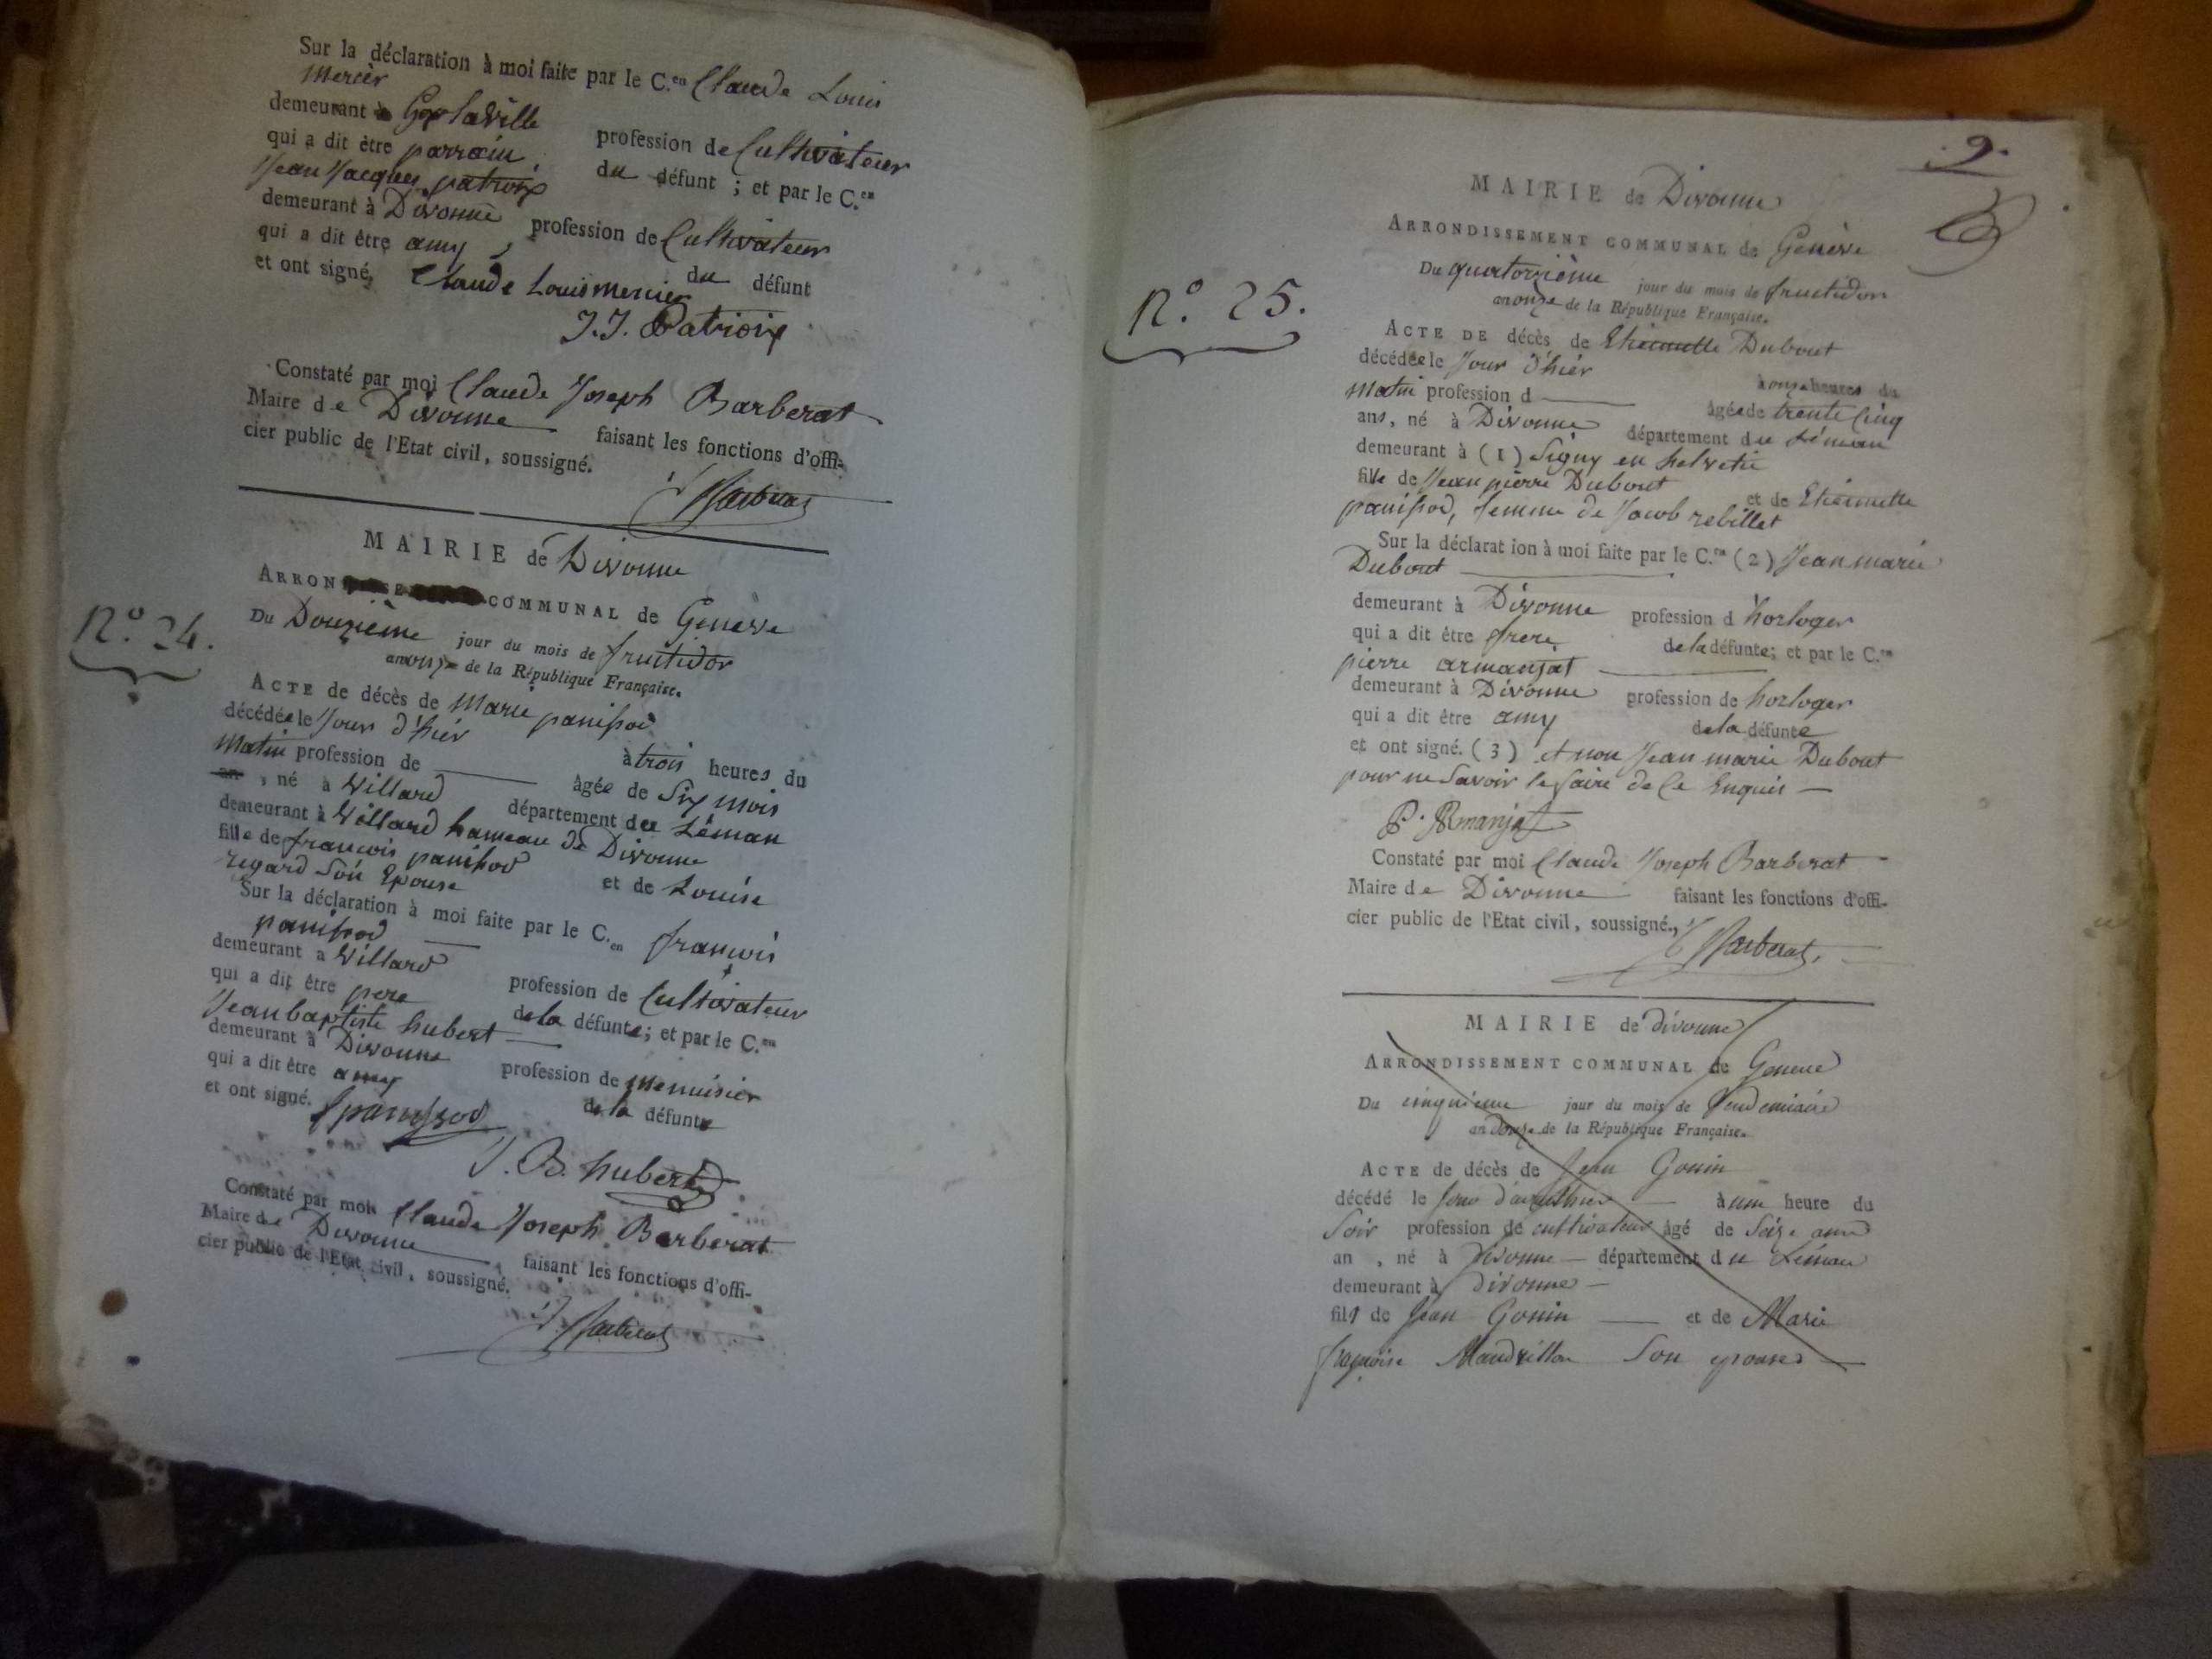 Sur la déclaration à moi faite par le C.en Claude Louis
Mercier
demeurant à laville profession de Cultivateur
qui a dit être parrain du défunt ; et par le C.en
Jean Jacques patroix
demeurant à Divonne profession de Cultivateur
qui a dit être amy, du défunt
et ont signé, Claude Louis mercier
J. J. Patroix
Constaté par moi Claude Joseph Barberat
Maire de Divonne faisant les fonctions d'offi-
cier public de l'Etat civil, soussigné.
Barberat
MAIRIE de Divonne
ARRON COMMUNAL de Genève
N.º 24.
Du Douzième jour du mois de fructidor
an onze de la République Française.
ACTE de décès de Marie panissod
décédée le Jour d'hier à trois heures du
Matin profession de — âgée de Six mois
an, né à Villard département du Léman
demeurant à Villard hameau de Divonne
fille de francois panissod et de Louise
regard Son Epouse
Sur la déclaration à moi faite par le C.en francois
panissod
demeurant a Villard profession de Cultivateur
qui a dit être pere de la défunte; et par le C.en
Jean baptiste hubert
demeurant à Divonne profession de menuisier
qui a dit être amy de la défunte
et ont signé. f panissod
J. B. hubert
Constaté par moi Claude Joseph Barberat
Maire de Divonne, faisant les fonctions d'offi-
cier public de l'Etat civil, soussigné.
Barberat
9.
MAIRIE de Divonne
ARRONDISSEMENT COMMUNAL de Genève
N.º 25.
Du quatorzième jour du mois de fructidor
an onze de la République Française.
ACTE DE décès de Etiennette Dubout
décédée le Jour d'hier à onze heures du
Matin profession d — âgée de trente Cinq
ans, né à Divonne département du Léman
demeurant à (1) Signy en helvetie
fille de Jean pierre Dubout et de Etiennette
panissod, femme de Jacob rebillet
Sur la déclarat ion à moi faite par le C.en (2) Jean marie
Dubout
demeurant à Divonne profession d horloger
qui a dit être frere de la défunte; et par le C.en
pierre armanjat
demeurant à Divonne profession de horloger
qui a dit être amy de la défunte
et ont signé. (3) et non Jean marie Dubout
pour ne Savoir le faire de Ce Enquis —
P. Armanjat
Constaté par moi Claude Joseph Barberat
Maire de Divonne faisant les fonctions d'offi-
cier public de l'Etat civil, soussigné.
Barberat
MAIRIE de divonne
ARRONDISSEMENT COMMUNAL de Geneve
Du cinquieme jour du mois de Vendemiaire
an douze de la République Française.
ACTE de décès de Jean Gonin
décédé le Jour d'avanthier — à une heure du
Soir profession de cultivateur âgé de Seize ans
an, né à divonne — département du Léman
demeurant à divonne —
fils de Jean Gonin — et de Marie
françoise Maudrillon Son epouse —